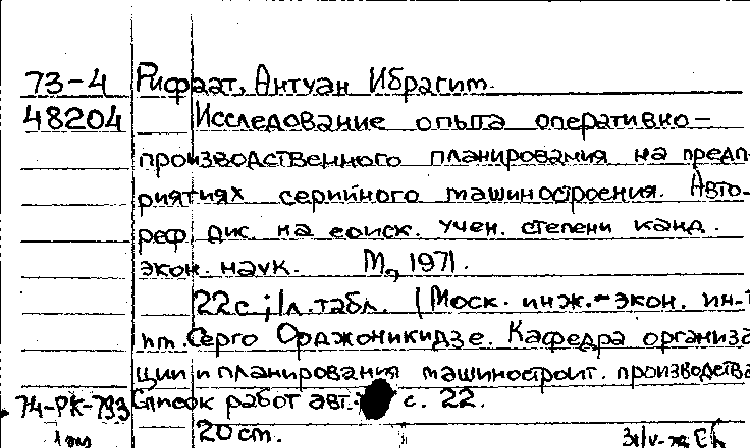 73-4 Рифаат, Антуан Ибрагим.
48204 Исследование опыта оперативно-
производственного планирования на предп-
риятиях серийного машиностроения. Авто-
реф. дис. на соиск. учен. степени канд.
экон. наук. М., 1971.
22 с.; 1 л. табл. (Моск. инж.-экон. ин-т
им. Серго Орджоникидзе. Кафедра организа
ции и планирования машиностроит. производства
74-РК-793 Список работ авт.: с. 22.
20 см.